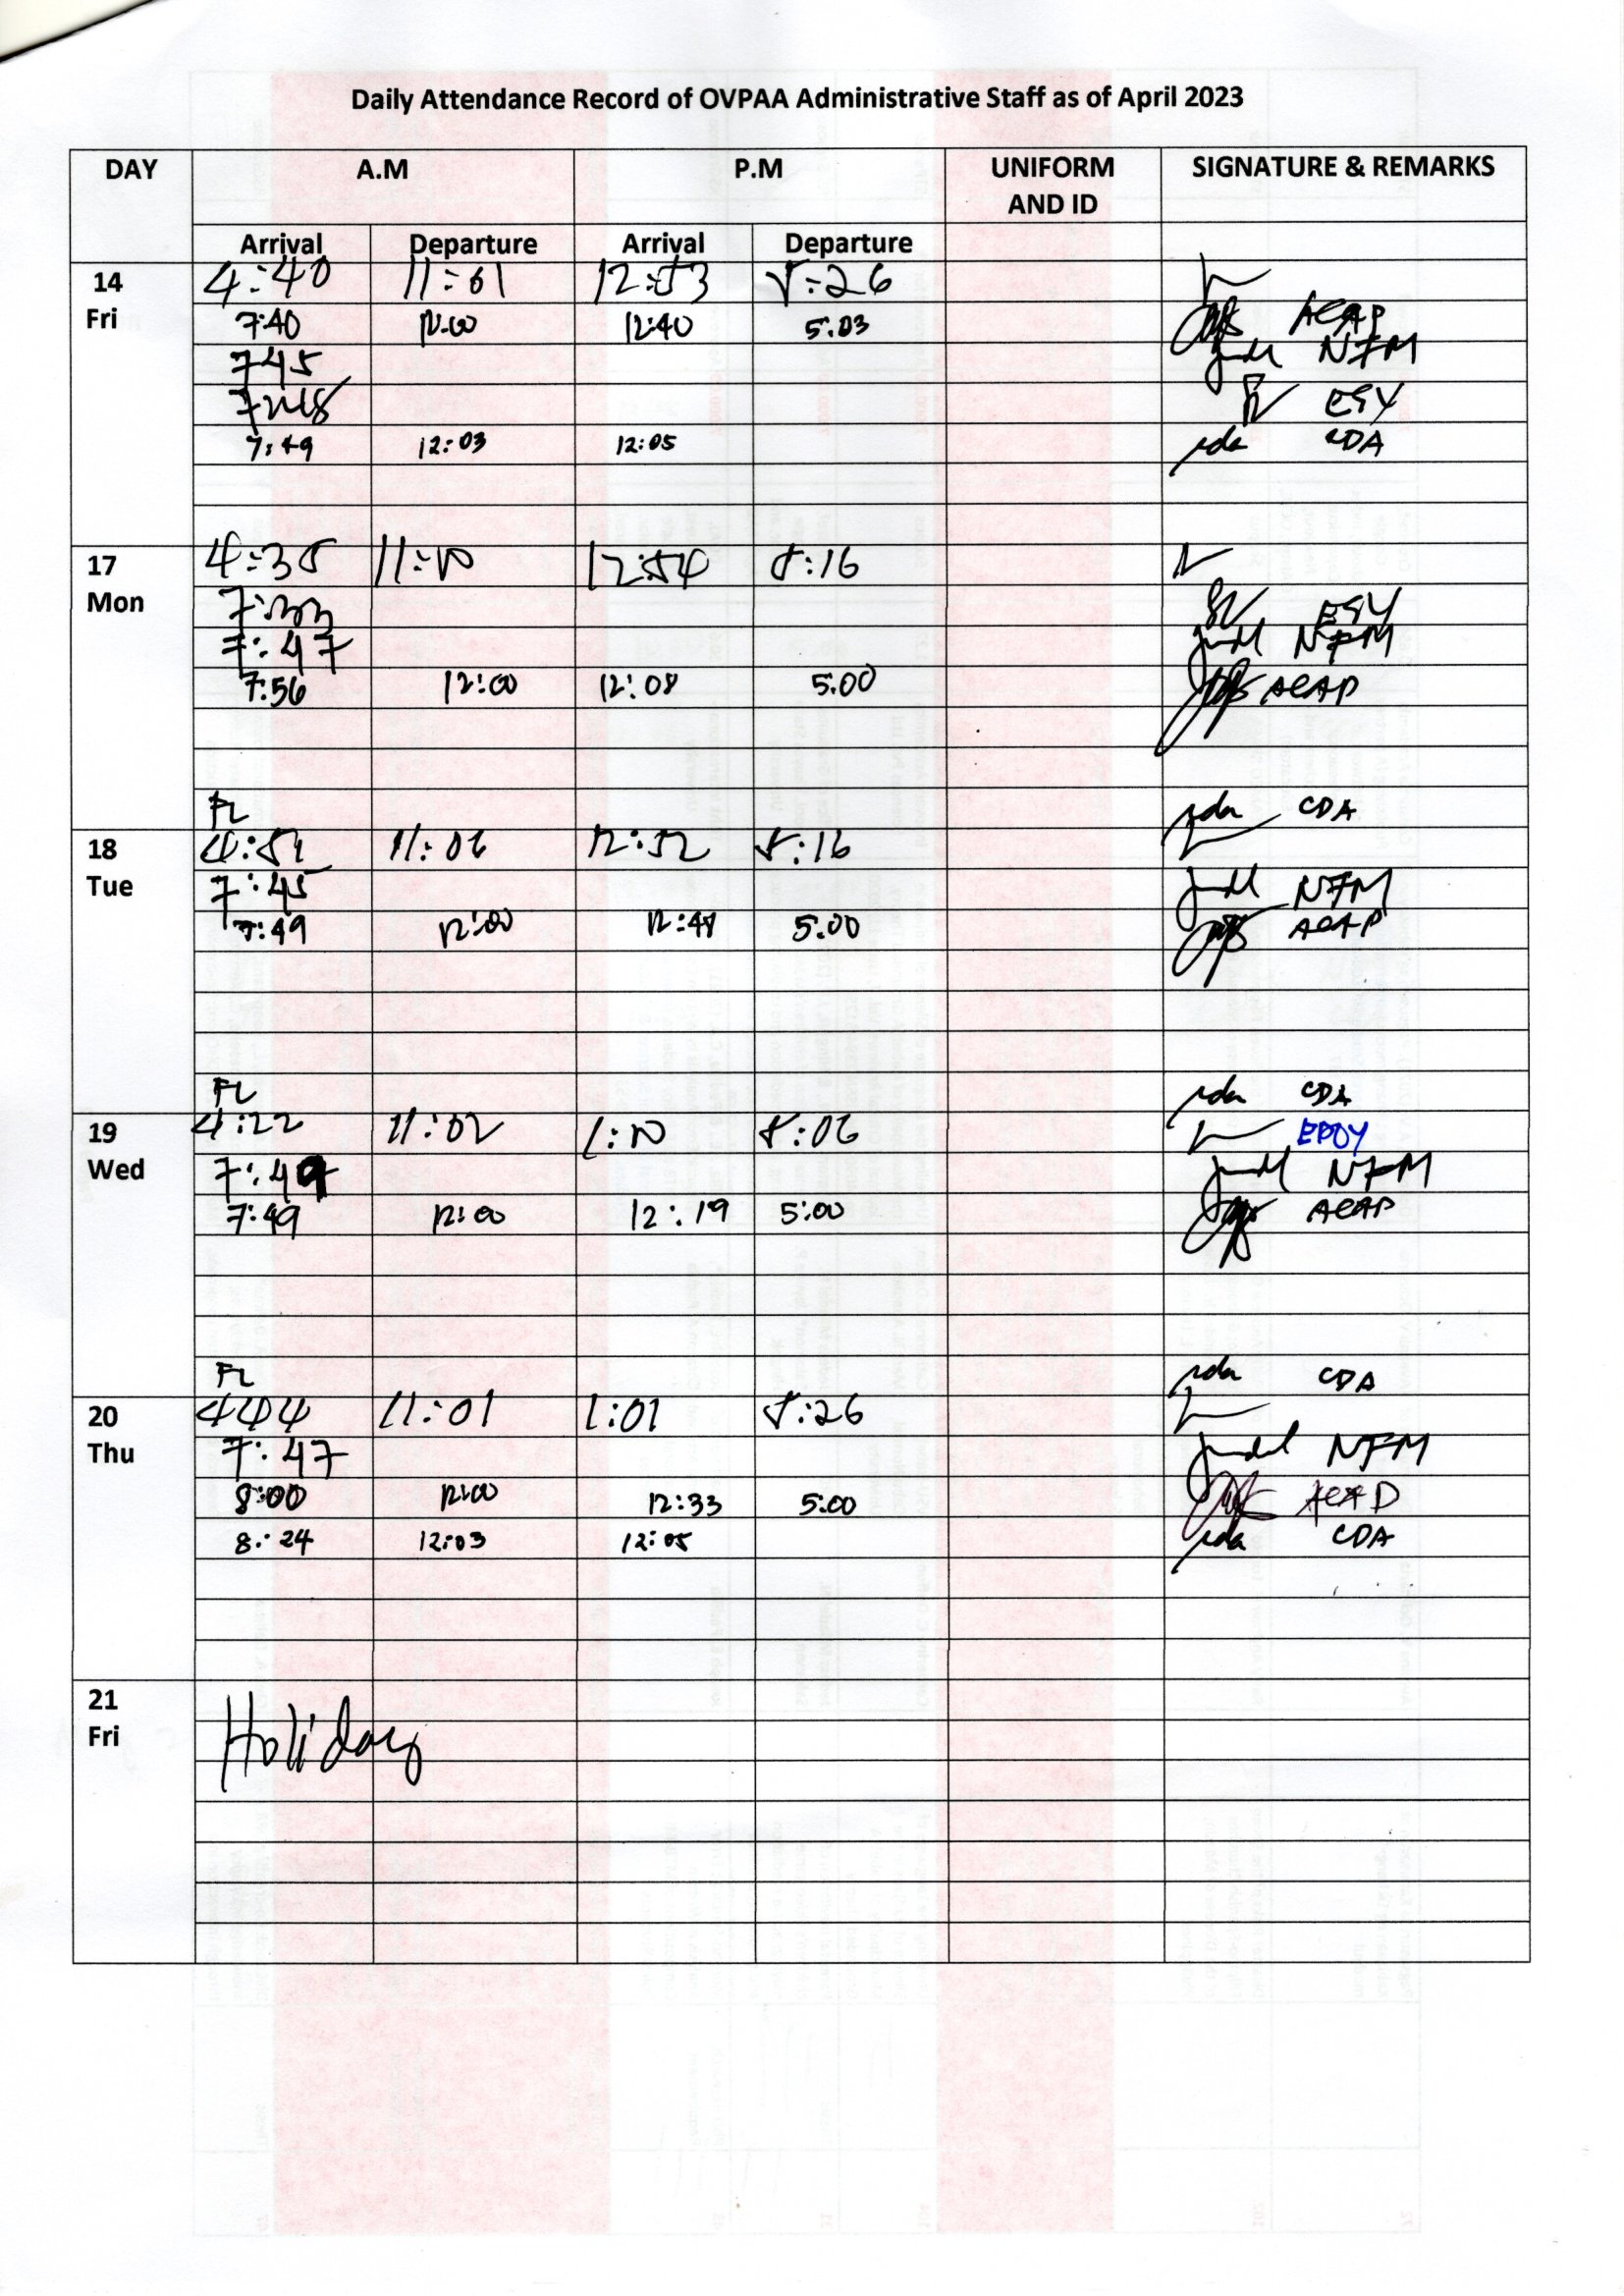 Daily Attendance Record of OVPAA Administrative Staff as of April 2023
DAY A.M P.M UNIFORM AND ID SIGNATURE & REMARKS
Arrival Departure Arrival Departure
14 Fri 4:40 11:01 12:53 5:26
7:40 12:00 12:40 5:03 ACAP
745 NFM
ESY
7:49 12:03 12:05 CDA
17 Mon 4:35 11:10 12:54 5:16
7:33 ESY
7:47 NFM
7:56 12:00 12:08 5:00 ACAP
FL CDA
18 Tue 4:52 11:06 12:52 5:16
7:45 NFM
7:49 12:00 12:48 5:00 ACAP
FL CDA
19 Wed 4:22 11:02 1:10 5:06 EPOY
7:49 NFM
7:49 12:00 12:19 5:00 ACAP
FL CDA
20 Thu 444 11:01 1:01 5:26
7:47 NFM
8:00 12:00 12:33 5:00 ACAP
8:24 12:03 12:05 CDA
21 Fri Holiday